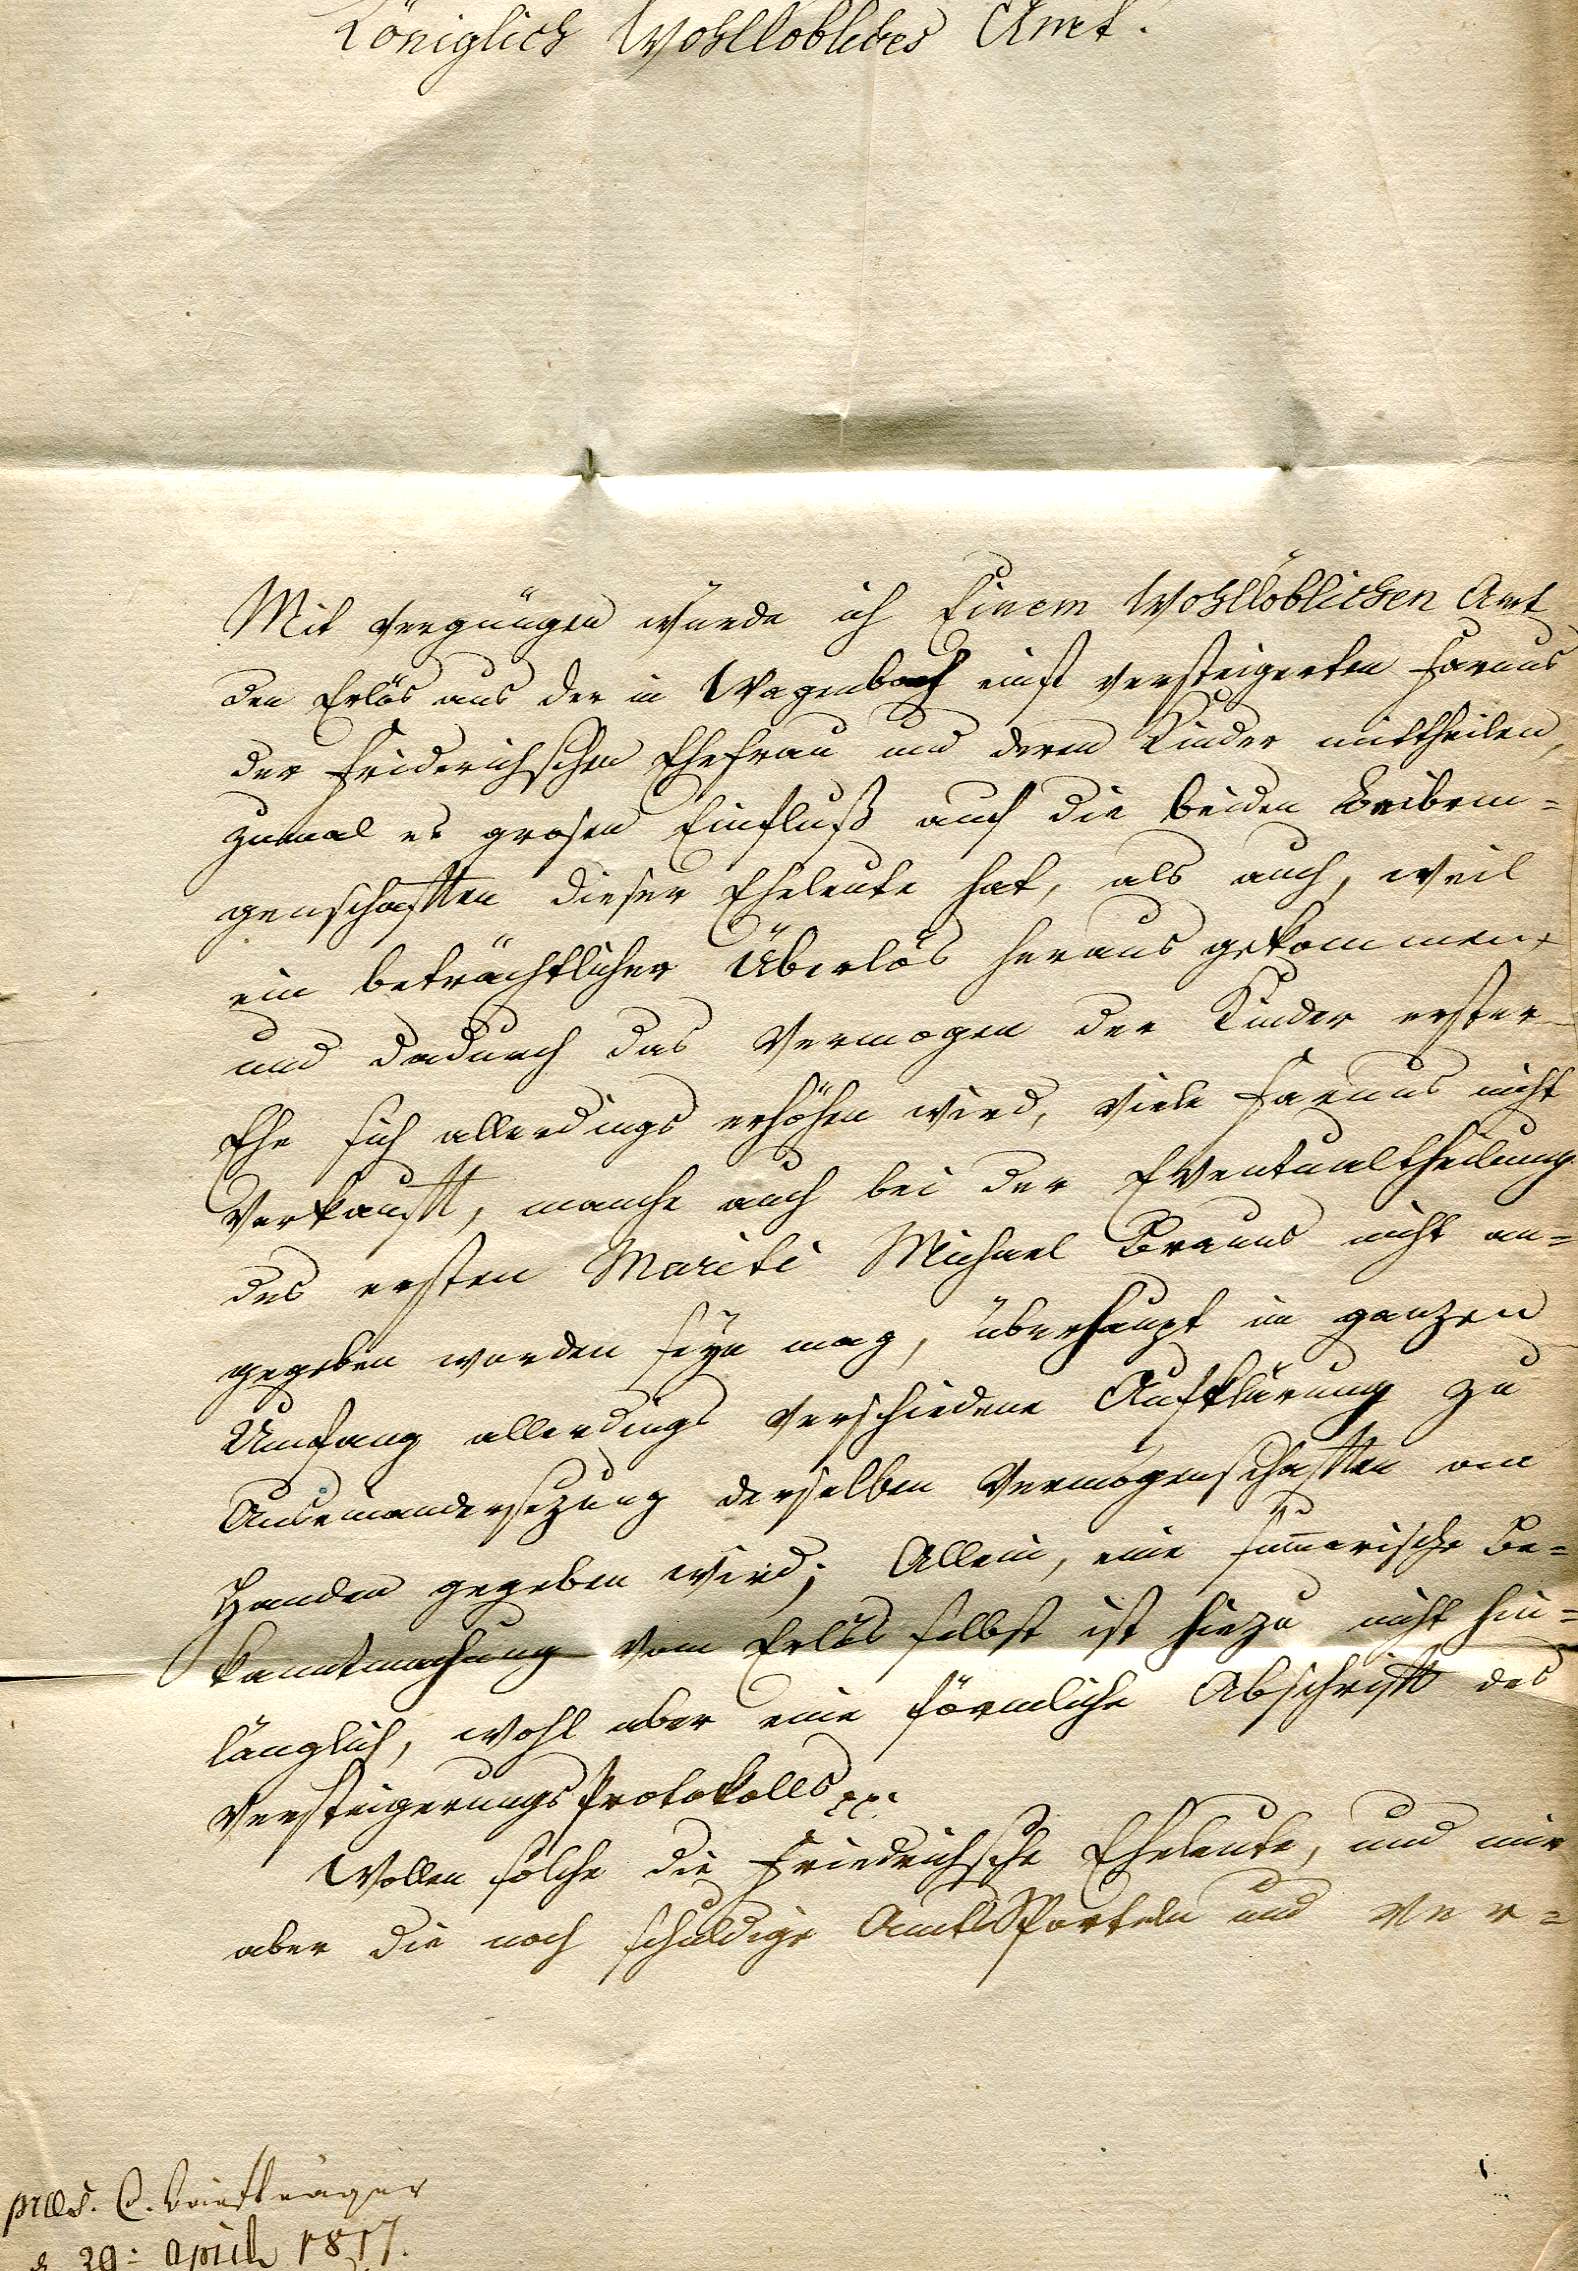 Königlich Wohllöbliches Amt.
Mit Vergnügen würde ich Einem Wohllöblichen Amt
den Erlös aus der in Wagenbach einst versteigerten Farnus
der Friderichschen Ehefrau und deren Kinder mittheilen,
zumal es grosen Einfluß auf die beiden Beibrin=
genschafften dieser Eheleute hat, als auch, weil
ein beträchtlicher Überlös heraus gekommen,
und dadurch das Vermögen der Kinder erster
Ehe sich allerdings erhöhen wird, viele Farnus nicht
verkaufft, manche auch bei der Eventualtheilung
des ersten Mariti Michael Brauns nicht an=
gegeben worden seyn mag, überhaupt im ganzen
Umfang allerdings verschiedene Aufklärung zu
Auseinandersezung derselben Vermögenschafften an
Handen gegeben wird; Allein, eine sum̅arische Be=
kanntmachung vom Erlös selbst ist hiezu nicht hin=
länglich, wohl aber eine förmliche Abschrifft des
Versteigerungs Protokolls
Wollen solche die Friedrichsche Eheleute, und mir
aber die noch schuldige Amts Sporteln und Ver=
praes. Briefträger
d 29: April 1817.